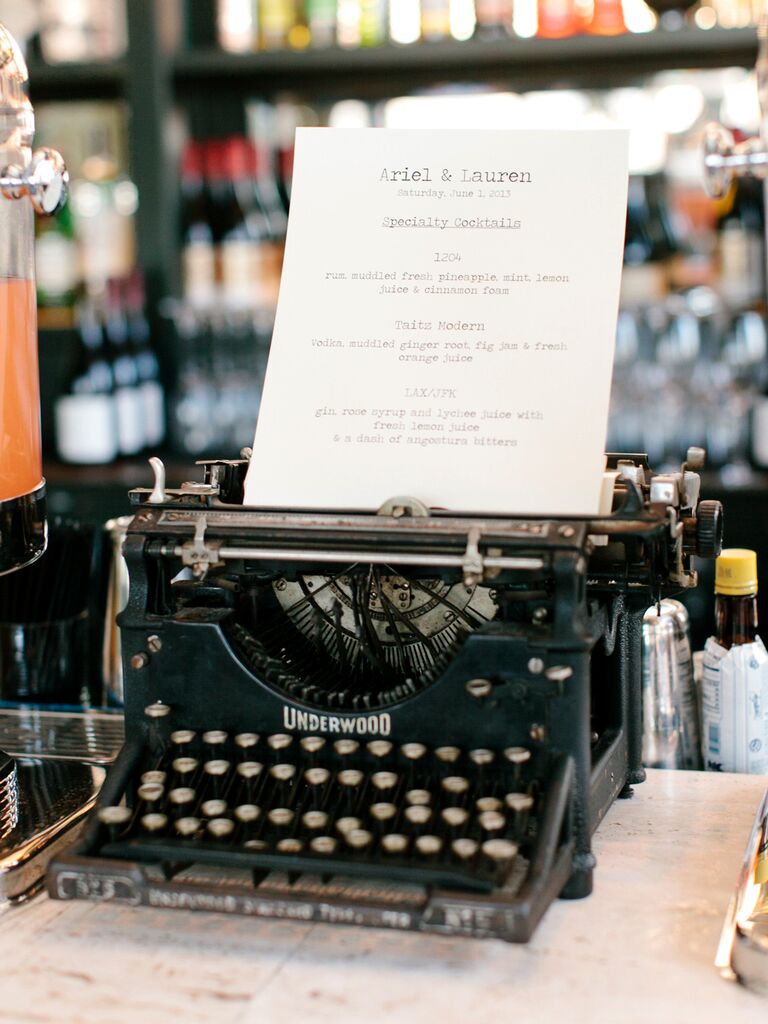 Ariel & Lauren
Saturday, June 1, 2013
Specialty Cocktails
1204
rum, muddled fresh pineapple, mint, lemon
juice & cinnamon foam
Taitz Modern
Vodka, muddled ginger root, fig jam & fresh
orange juice
LAX/JFK
gin, rose syrup and lychee juice with
fresh lemon juice
& a dash of angostura bitters
UNDERWOOD